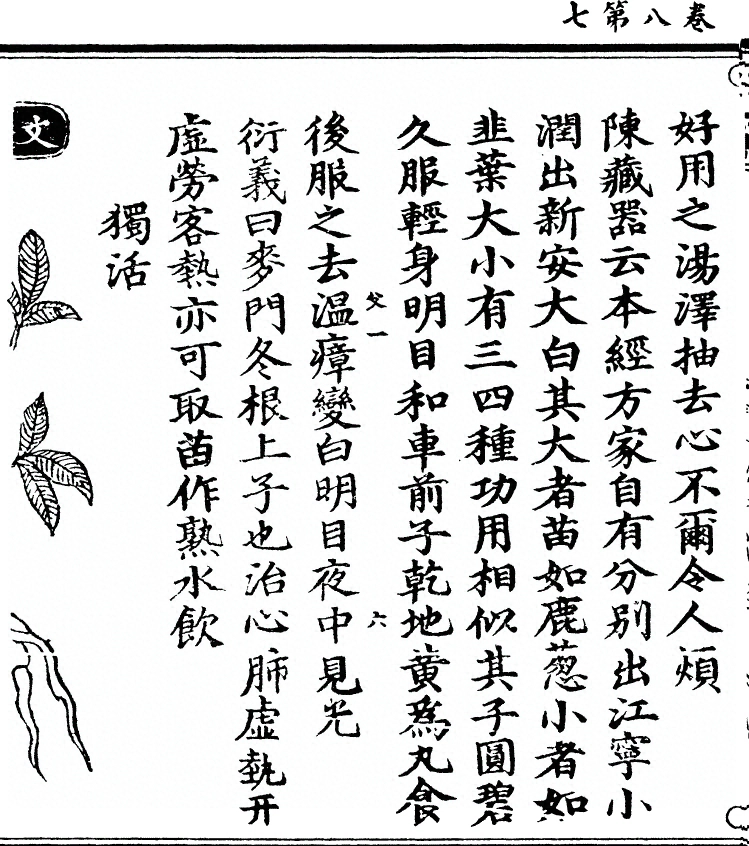 七第八卷
好用之湯澤抽去心不爾令人煩
陳藏器云本經方家自有分別出江寧小
潤出新安大白其大者苗如鹿葱小者如
韭葉大小有三四種功用相似其子圓碧
久服輕身明目和車前子乾地黄爲丸食
後服之去温瘴變白明目夜中見光
衍義曰麥門冬根上子也治心肺虛熱并
虛勞客熱亦可取苗作熟水飲
獨活
文